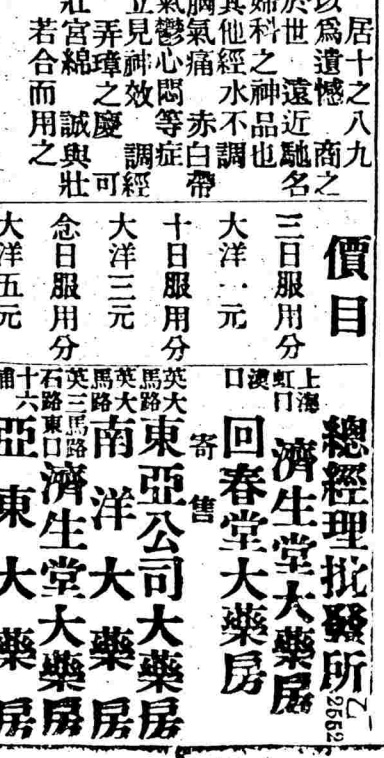 居十之八九
以爲遺憾 商之
於世 遠近馳名
婦科之神品也
其他經水不調
氣痛 赤白帶
氣鬱心悶等症
立見神效 調經
弄璋之慶 可
壯宮綿 誠與壯
若合而用之
價目
三日服用分
大洋一元
十日服用分
大洋三元
念日服用分
大洋五元
總經理批發所
乙 2552
上海虹口 濟生堂大藥房
漢口 回春堂大藥房
寄售
英大馬路 東亞公司大藥房
英大馬路 南洋大藥房
英三馬路石路東口 濟生堂大藥房
十六浦 亞東大藥房